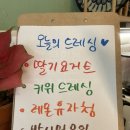 오늘의 드레싱
딸기요거트
키위 드레싱
레몬유자청